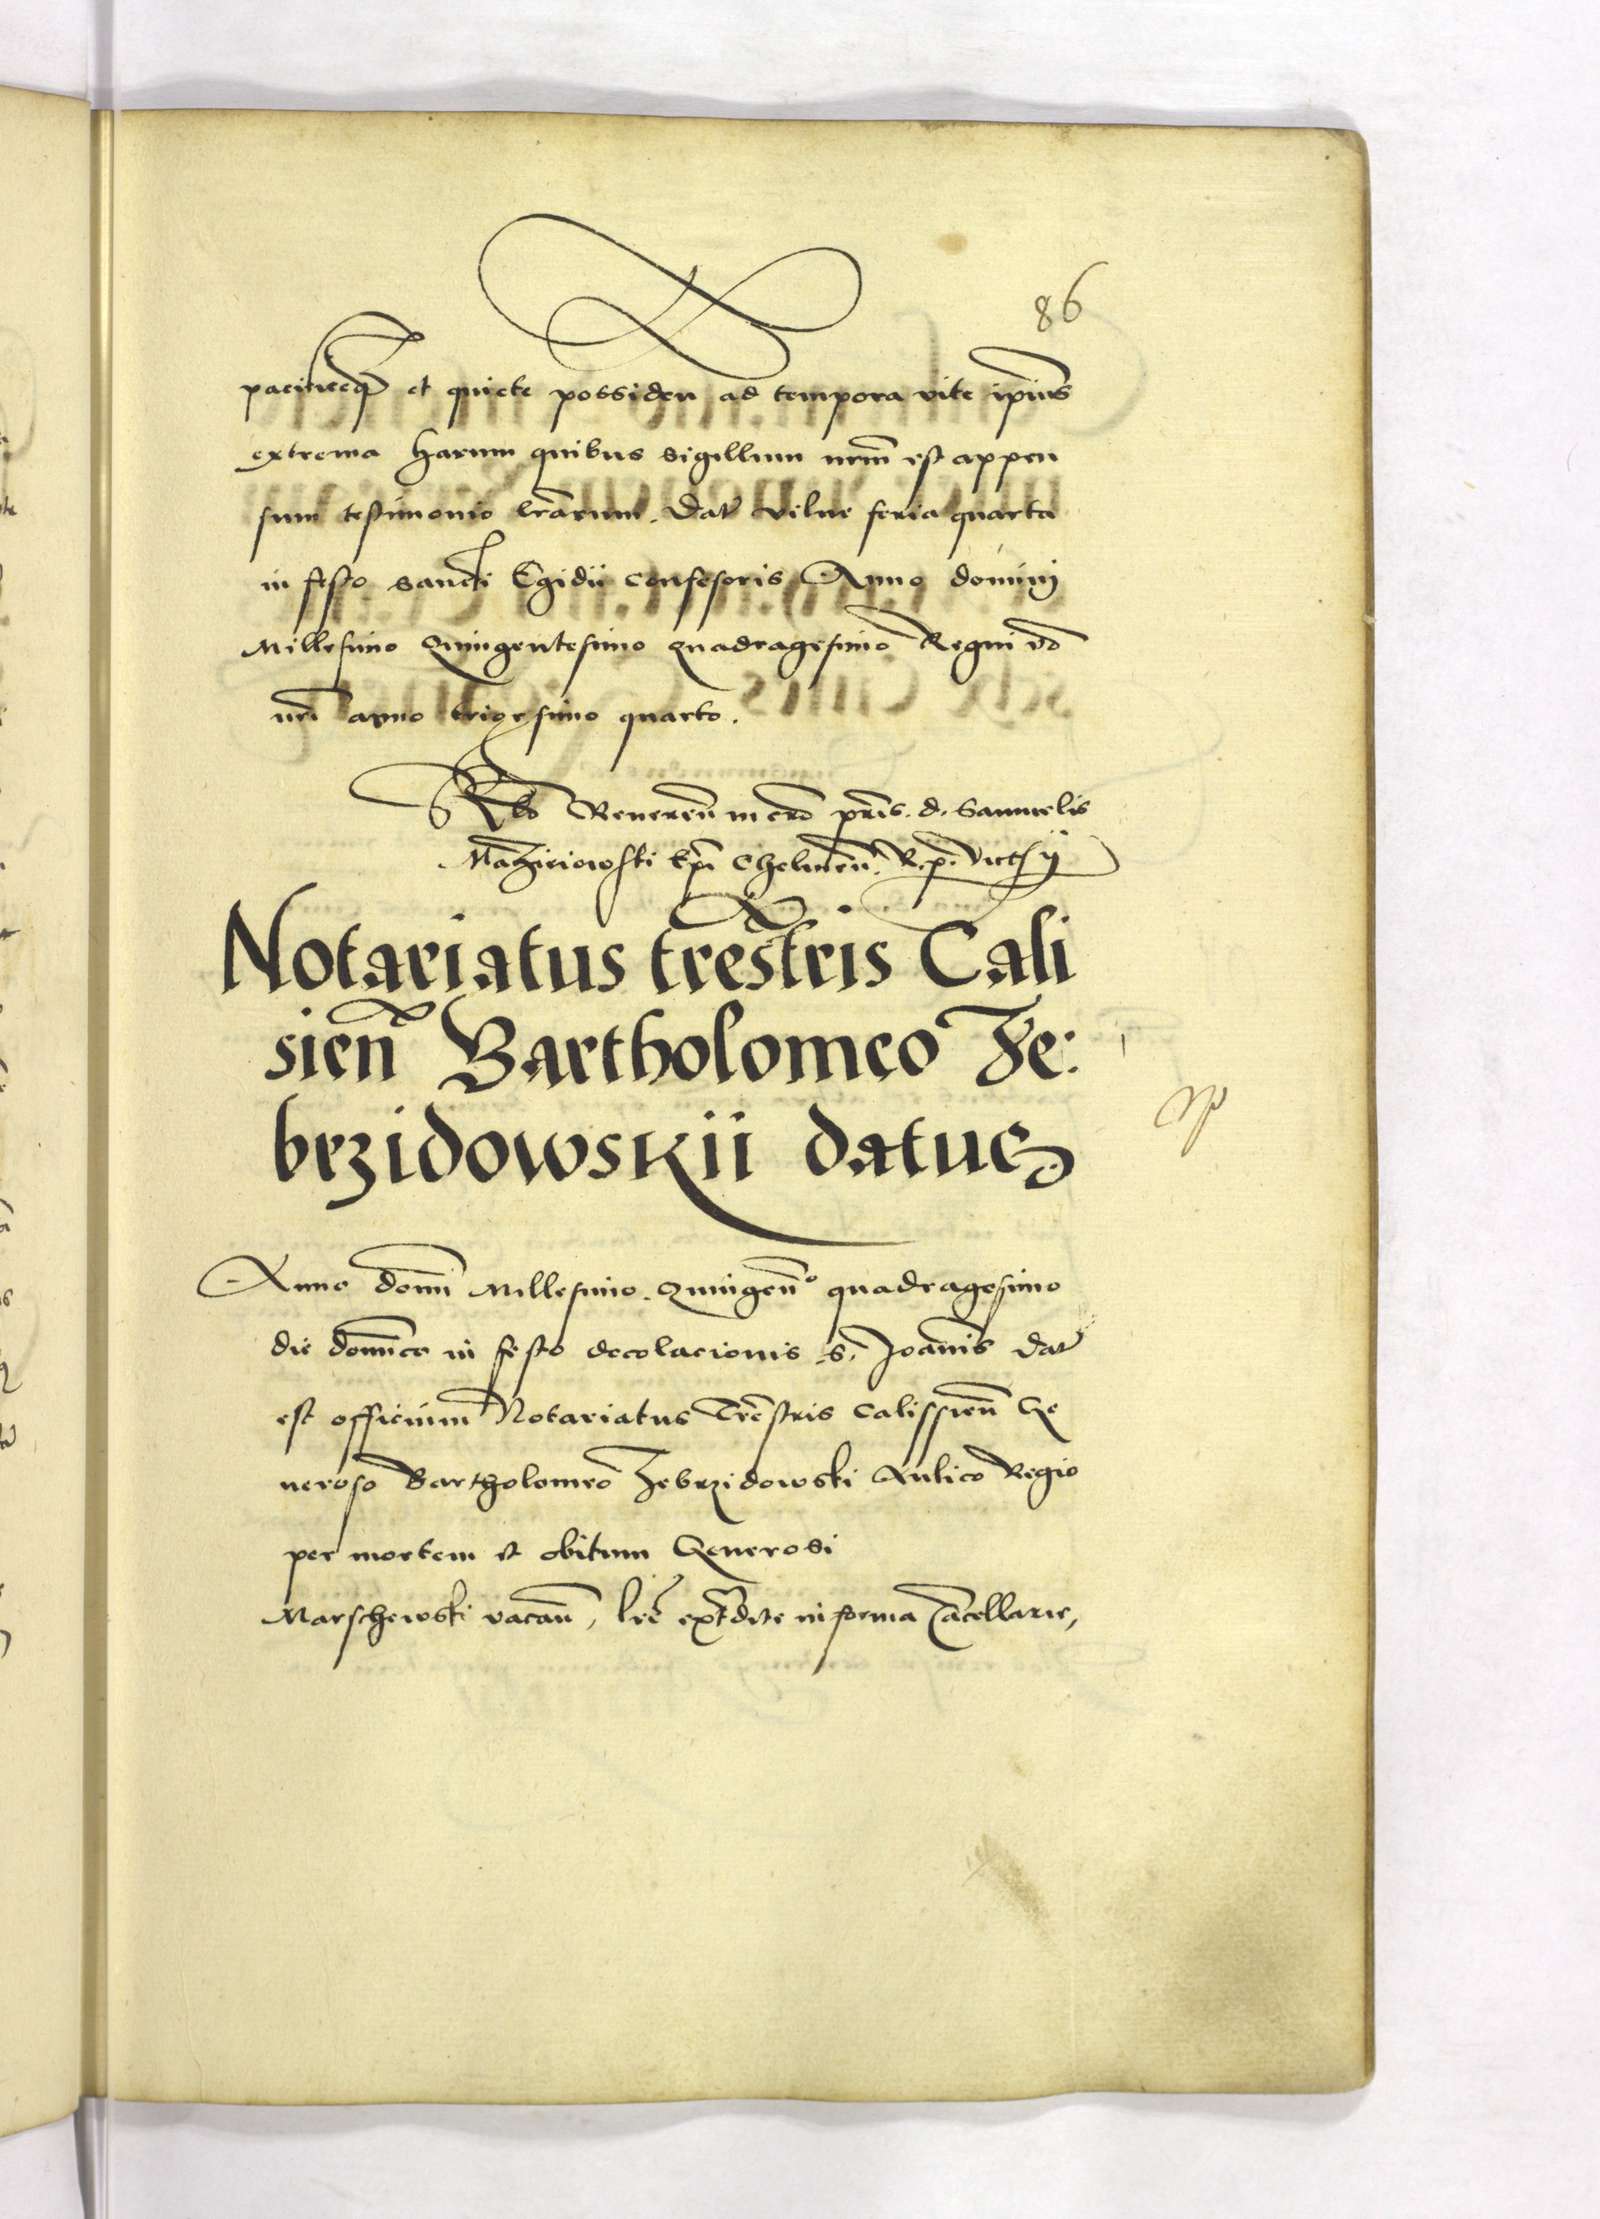 86
pacificeq et quiete possiden ad tempora vite ipius
extrema harum quibus sigillum nrm est appen
sum testimonio lrarum. Dat Vilne feria quarta
in festo sancti Egidii confessoris Anno domini
Millesimo Quingentesimo quadragesimo Regni vo
nri anno trigesimo quarto.
Rlo Reveren in cro pris. d. Samuelis
Maczieiowski Epi Chelmen. R. p. Vicecs
Notariatus trestris Cali
sien Bartholomeo Ze:
brzidowskii datus
Anno domi Millesimo. Quingen⁰ quadragesimo
die dominico in festo decolacionis s. Joannis dat
est officium Notariatus Trestris Calissien Ge
neroso Bartholomeo Zebrzidowski Aulico Regio
per mortem et obitum Generosi
Marschewski vacan, lre extradite in forma Cancellarie,